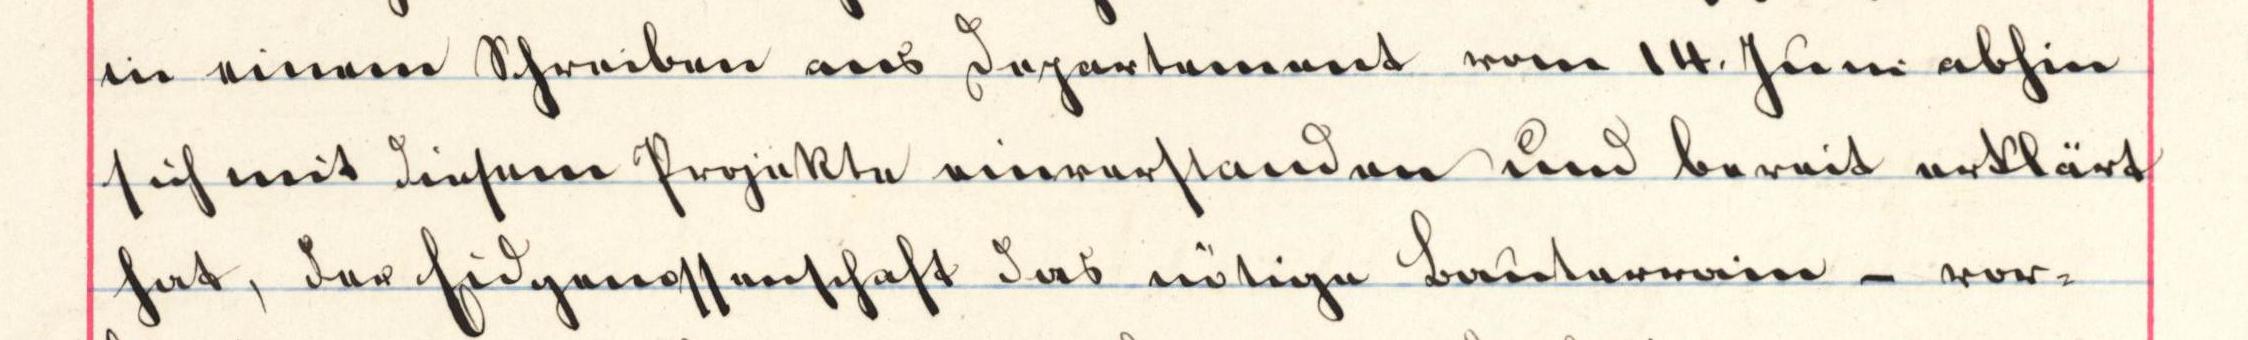 in einem Schreiben ans Departement vom 14. Juni abhin
sich mit diesem Projekte einverstanden und bereit erklärt
hat, der Eidgenossenschaft das nötige Bauterrain - vor-